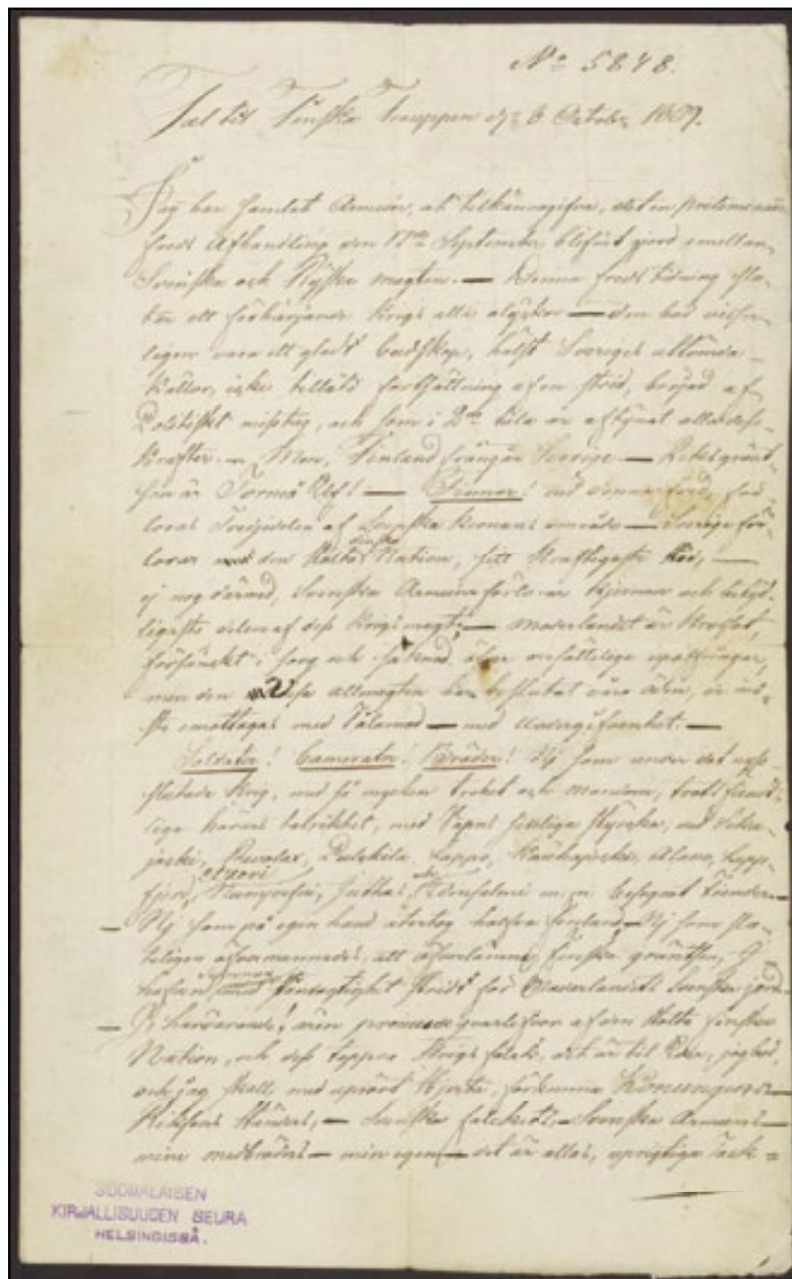 No 5848.
Tal till Finska Trouppen d. 8 October 1809.
Jag har samlat Armeen, at tilkännagifva, det en preliminair
freds Afhandling den 17de September blifvit gjord emellan
Svenska och Ryska magten. — Denna freds tidning
ett förhärjande Krigs alla olyckor — den bord
ligen vara ett gladt budskap, hälst Sveriges uttömda
Källor, icke tillåtit fortsättning af en strid, börjad af
Politiskt misstag, och som i 2ne
Krafter. — Men, Finland frångår Sverige. — Riksgränt-
sen är Torneå Elf! — Finnar! vid denna fred, för-
loras Tredjedelen af Svenska Kronans område — Sverige för-
lorar den stolta finska Nation, sitt kraftigaste stöd, —
ej nog därmed, Svenska Armeen förlorar kjernan och betyd-
ligaste delen af dess Krigsmagt; — moderlandet är krossat,
försänkt i sorg och saknad öfver oersättelige upoffringar,
men den visa allmagten har beslutat våra öden, de
ste emottagas med Tålamod — med undergifvenhet. —
Soldater! Camerater! Bröder! Ni som under det nyss
slutade Krig, med så mycken trohet och mandom, trots fiendt-
lige härens talrikhet, med Vapnens
jocki, Revolax, Pulckila, Lappo, Kauhajocki, Alavo, Lapp-
fjerd, Etseri Nummijervi, Juthas, Idensalmi m.m. besegrat Fienden —
Ni som på egen hand återtog halfva Finland — Ni som
teligen öfvermannades, att öfverlämna finska gräntsen, I
hafven med Ståndagtighet stridt för Moderlandets Svenska jord.
— I härvarande! äro af den stolta finska
Nation, och dess tappra Krigs folck, det är til Eder, jag bör,
och jag skall, med uprört hjerta, förkunna Konungens —
Riksens Ständers, — Svenska folckets, — Svenska Armeens —
mine medbröders — min egen — det är allas, uprigtiga Tack-
SUOMALAISEN
KIRJALLISUUDEN SEURA
HELSINGISSÄ.